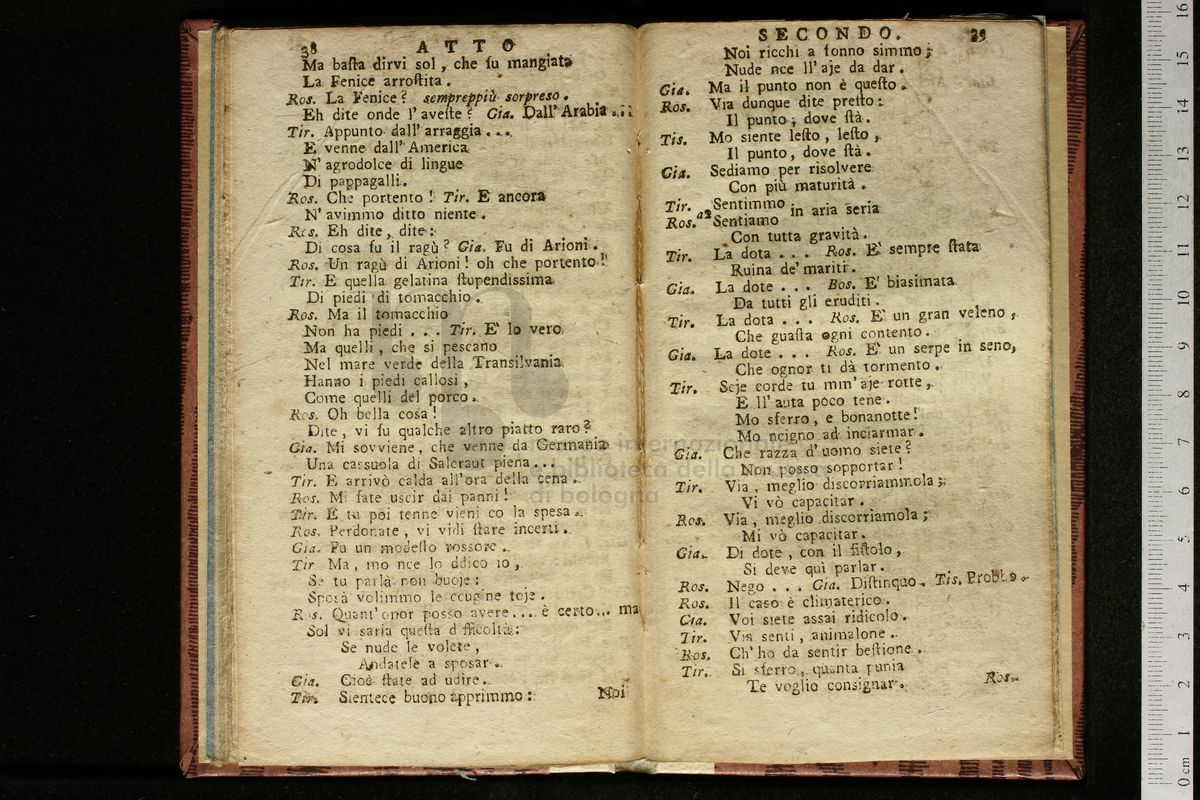 38 ATTO
Ma baſta dirvi sol, che fu mangiata
La Fenice arroſtita.
Ros. La Fenice? sempreppiù sorpreso.
Eh dite onde l'aveſte? Gia. Dall'Arabia...
Tir. Appunto dall'arraggia...
E venne dall'America
N'agrodolce di lingue
Di pappagalli.
Ros. Che portento! Tir. E ancora
N'avimmo ditto niente.
Ros. Eh dite, dite:
Di cosa fu il ragù? Gia. Fu di Arioni.
Ros. Un ragù di Arioni! oh che portento!
Tir. E quella gelatina ſtupendissima
Di piedi di tomacchio.
Ros. Ma il tomacchio
Non ha piedi... Tir. E' lo vero
Ma quelli, che si pescano
Nel mare verde della Transilvania
Hanno i piedi callosi,
Come quelli del porco.
Ros. Oh bella cosa!
Dite, vi fu qualche altro piatto raro?
Gia. Mi sovviene, che venne da Germania
Una cassuola di Salcraut piena...
Tir. E arrivò calda all'ora della cena.
Ros. Mi fate uscir dai panni!
Tir. E tu poi tenne vieni co la spesa.
Ros. Perdonate, vi vidi ſtare incerti.
Gia. Fu un modeſto rossore.
Tir Ma, mo nce lo ddico io,
Se tu parlà non buoje:
Sposà volimmo le ccugine toje.
Ros. Quant'onor posso avere... è certo... ma
Sol vi saria queſta difficoltà:
Se nude le volete,
Andatele a sposar.
Gia. Cioè ſtate ad udire.
Tir. Sientece buono apprimmo:
Noi
SECONDO. 39
Noi ricchi a ſonno simmo;
Nude nce ll'aje da dar.
Gia. Ma il punto non è queſto.
Ros. Via dunque dite preſto:
Il punto, dove ſtà.
Tis. Mo siente leſto, leſto,
Il punto, dove ſtà.
Gia. Sediamo per risolvere
Con più maturità.
Tir. Sentimmo
Ros. a2 Sentiamo in aria seria
Con tutta gravità.
Tir. La dota... Ros. E' sempre ſtata
Ruina de' mariti.
Gia. La dote... Bos. E' biasimata
Da tutti gli eruditi.
Tir. La dota... Ros. E' un gran veleno,
Che guaſta ogni contento.
Gia. La dote... Ros. E' un serpe in seno,
Che ognor ti dà tormento.
Tir. Seje corde tu mm'aje rotte,
E ll'auta poco tene.
Mo sferro, e bonanotte!
Mo ncigno ad inciarmar.
Gia. Che razza d'uomo siete?
Non posso sopportar!
Tir. Via, meglio discorriammola;
Vi vò capacitar.
Ros. Via, meglio discorriamola;
Mi vò capacitar.
Gia. Di dote, con il fiſtolo,
Si deve qui parlar.
Ros. Nego... Gia. Diſtinquo. Tis. Probbo.
Ros. Il caso è climaterico.
Gia. Voi siete assai ridicolo.
Tir. Via senti, animalone.
Ros. Ch'ho da sentir beſtione.
Tir. Si sferro, quanta punia
Te voglio consignar.
Ros.